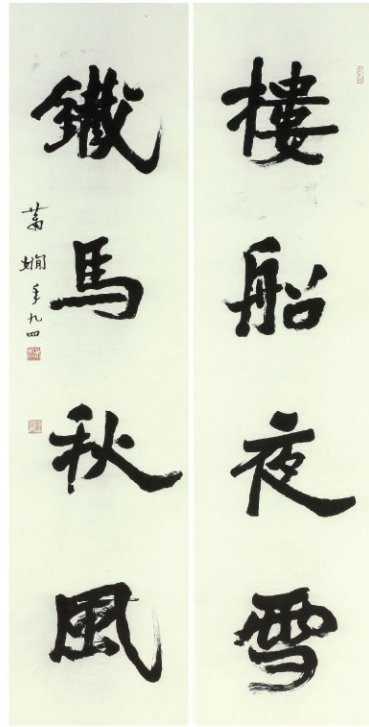 樓船夜雪
鐵馬秋風
蕭嫻年九四